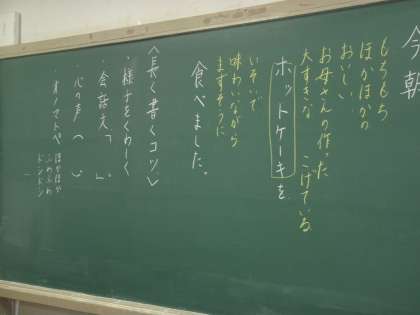 今朝
もちもち
ほかほかの
おいしい
お母さんの作った
大すきな こげている
ホットケーキを
いそいで
味わいながら
まずそうに
食べました。
〈長く書くコツ〉
・様子をくわしく
・会話文「 」
・心の声（ ）
・オノマトペ
ほかほか
ふわふわ
ドンドン